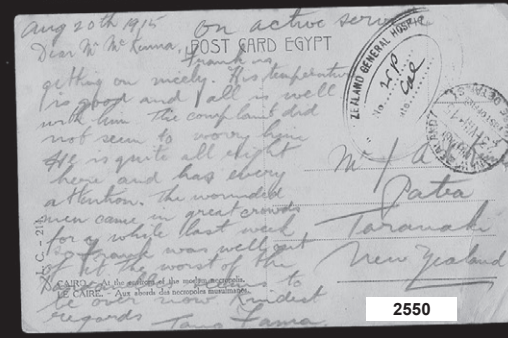 Aug 20th 1915 on active service
Dear Mr McKenna,
POST CARD EGYPT
Frank is
getting on nicely. His temperature
is good and all is well
with him. The complaint did
not seem to worry him
He is quite all right
here and has every
attention. The wounded
men came in great crowds
for a while last week
so Frank was well out
of it the worst of the
to
be over now Kindest
regards
ZEALAND GENERAL HOSPIT
No.
Mr J A
Patea
Taranaki
New Zealand
L. C. - 214
CAIRO. - At the of the modern necropolis.
LE CAIRE. - Aux abords des necropoles musulmanes.
2550